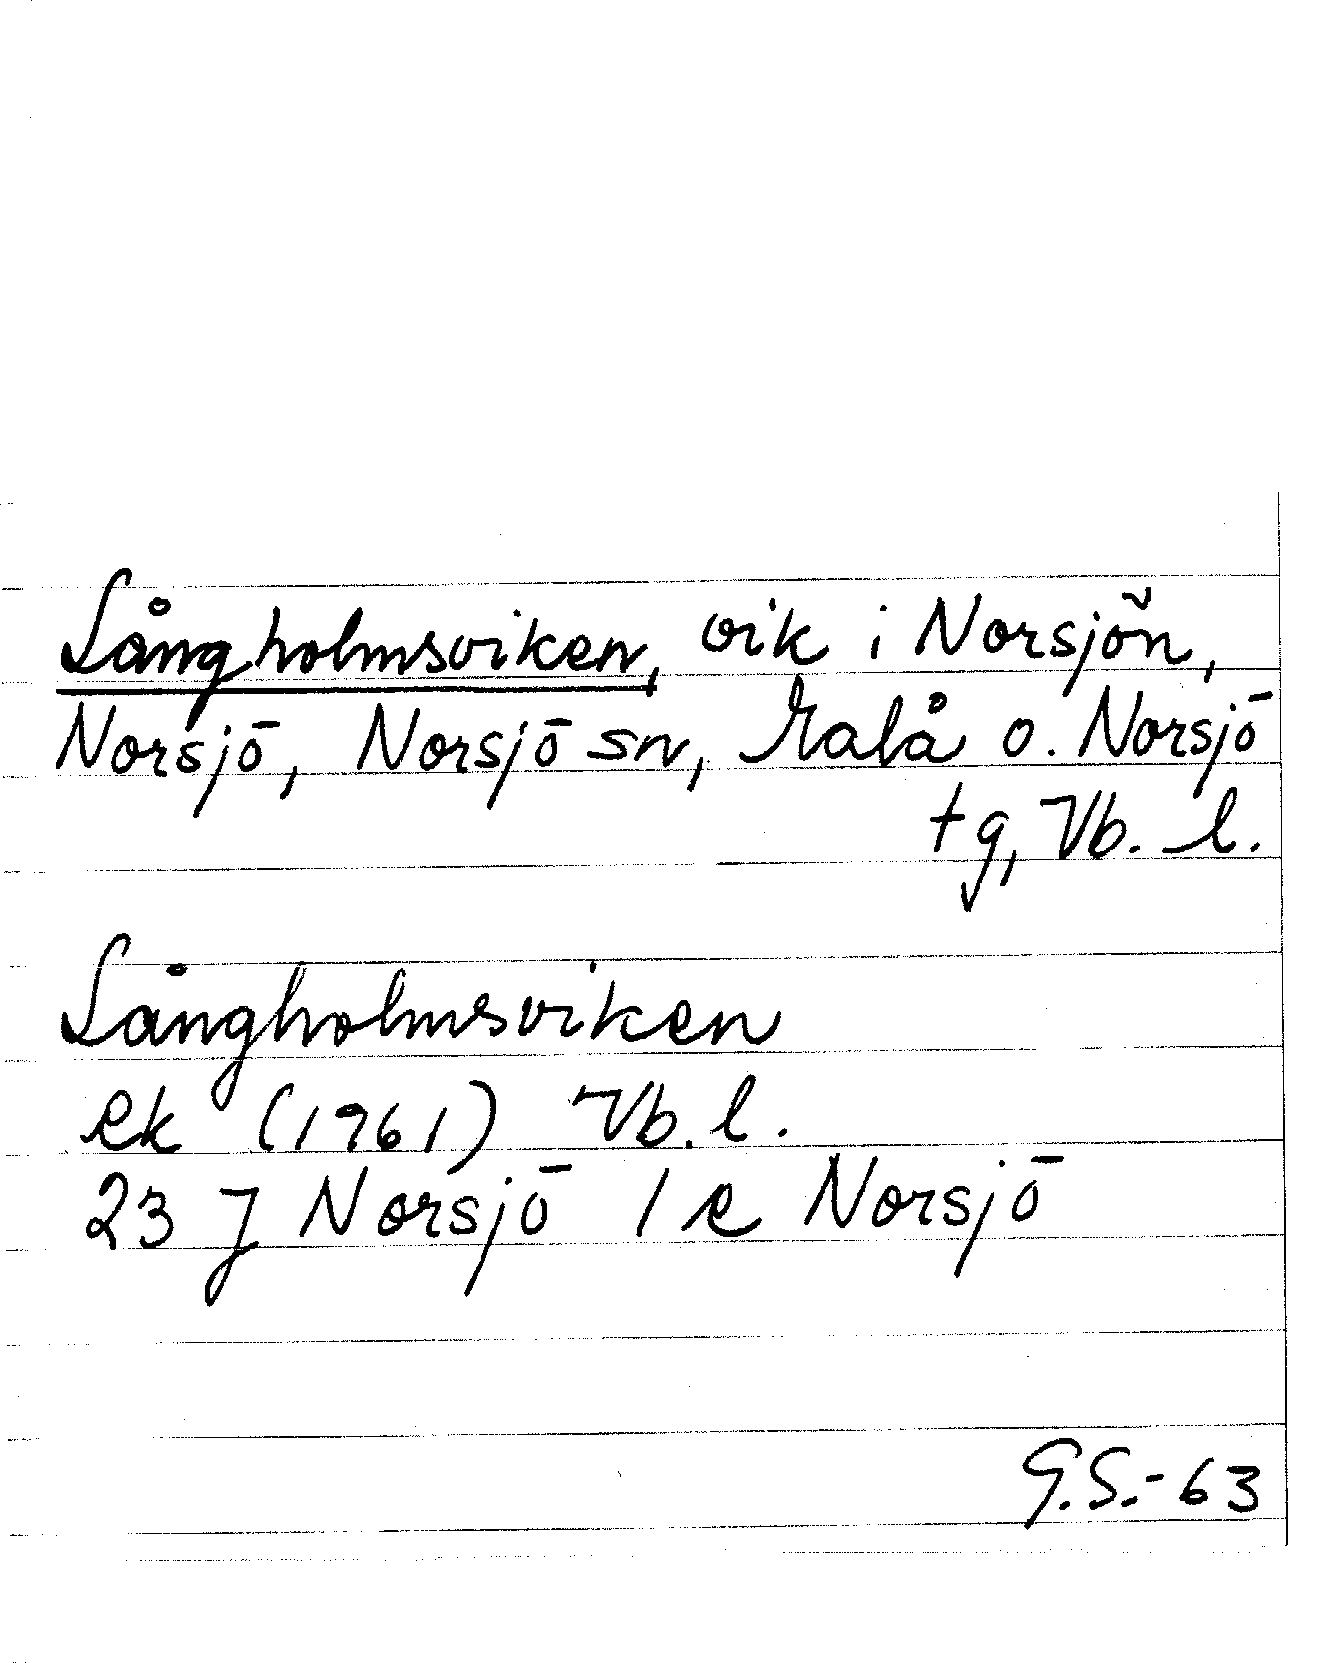 Långholmsviken, vik i Norsjön,
Norsjö, Norsjö sn, Malå o. Norsjö
tg, Vb. l.
Långholmsviken
ek (1961) Vb. l.
23 J Norsjö 1 e Norsjö
G.S.-63